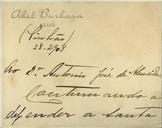 Abel Barbosa
(Pinhão)
28-2-908
Ao Dr. Antonio José de Almeida
Continuando a
defender a santa